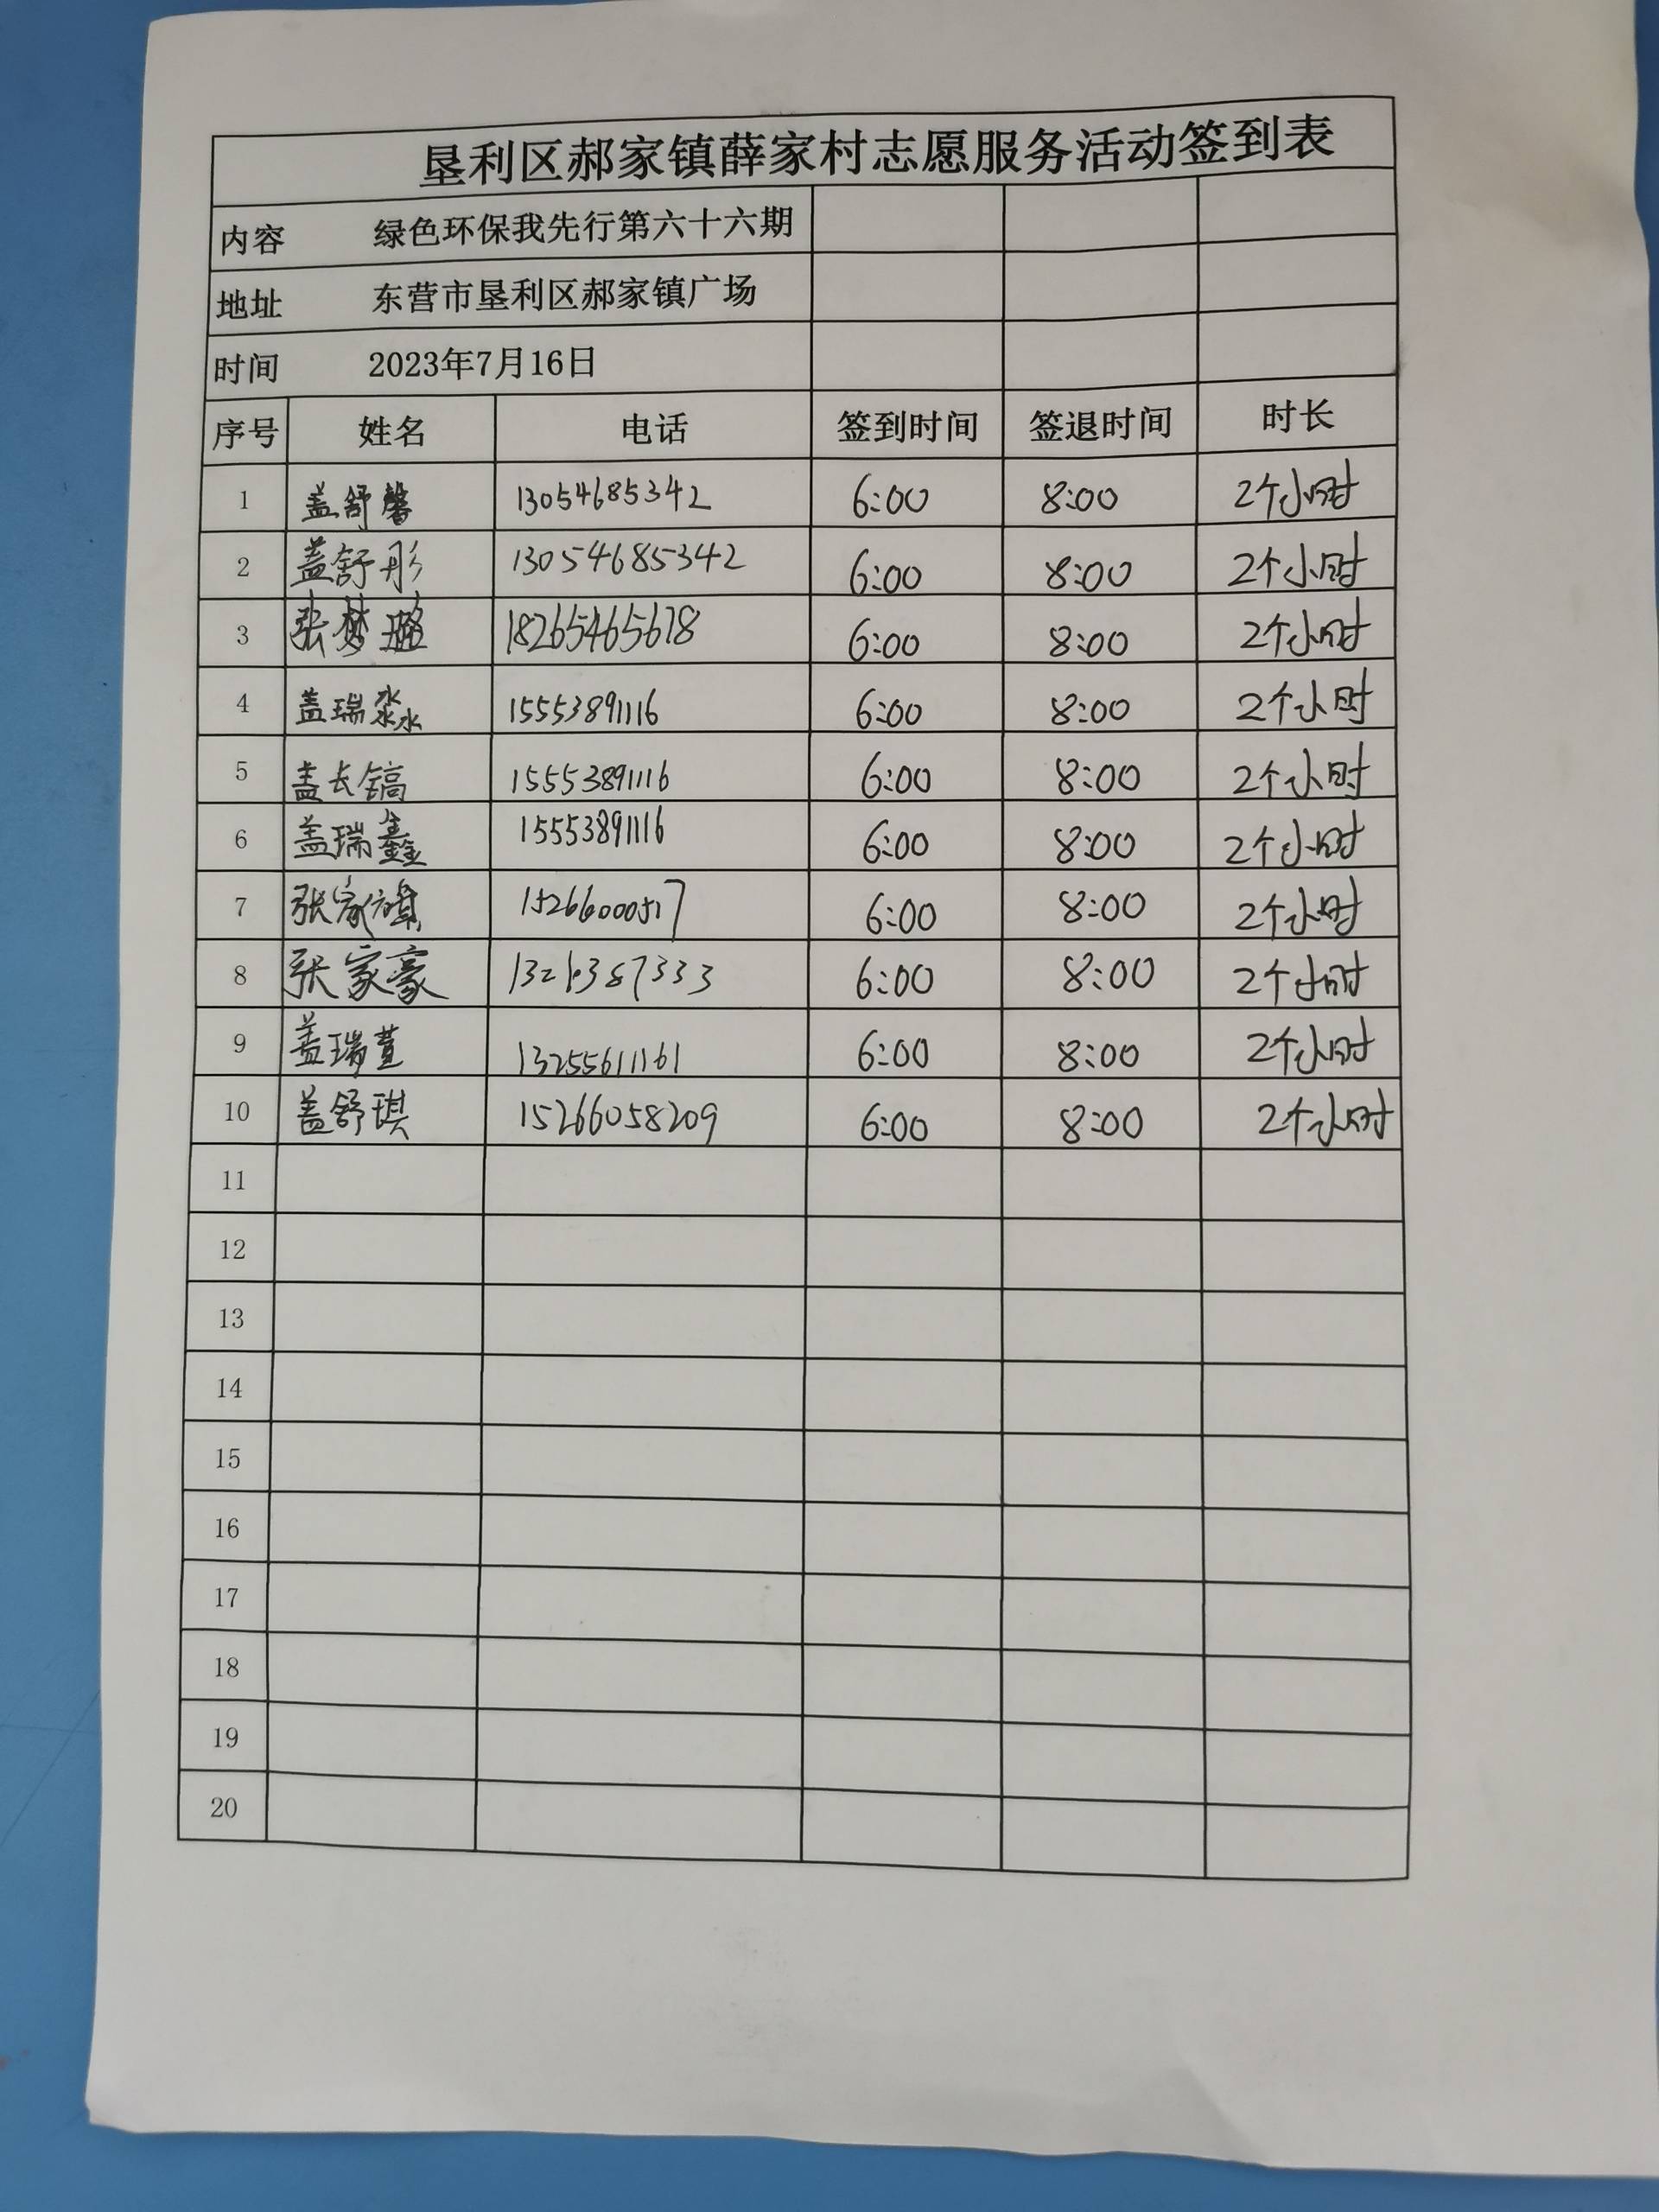 垦利区郝家镇薛家村志愿服务活动签到表
内容 绿色环保我先行第六十六期
地址 东营市垦利区郝家镇广场
时间 2023年7月16日
序号 姓名 电话 签到时间 签退时间 时长
1 盖舒馨 13054685342 6:00 8:00 2个小时
2 盖舒彤 13054685342 6:00 8:00 2个小时
3 张梦璐 18265465678 6:00 8:00 2个小时
4 盖瑞淼 15553891116 6:00 8:00 2个小时
5 盖长镐 15553891116 6:00 8:00 2个小时
6 盖瑞鑫 15553891116 6:00 8:00 2个小时
7 张家 15266000517 6:00 8:00 2个小时
8 张家豪 6:00 8:00 2个小时
9 盖瑞萱 13255611161 6:00 8:00 2个小时
10 盖舒琪 15266058209 6:00 8:00 2个小时
11
12
13
14
15
16
17
18
19
20